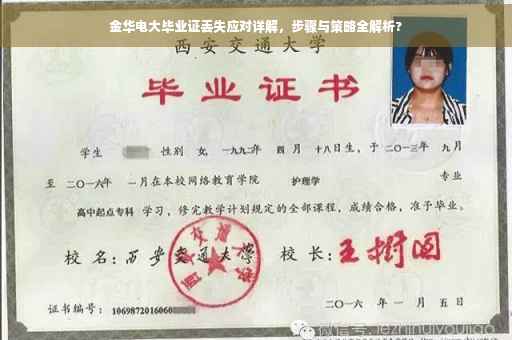 金华电大毕业证丢失应对详解，步骤与策略全解析?
西安交通大学
毕业证书
学生 性别 女, 一九九二年 四月 十八日生，于二〇一三年 九月
至 二〇一六年 一月在本校网络教育学院 护理学 专业
高中起点专科 学习，修完教学计划规定的全部课程，成绩合格，准予毕业。
校 名：西安交通大学 校 长：王树国
西安交通大学
证书编号：1069872016060
二〇一六 年 一 月 五 日
微信号: jiezhinuiyoujiao